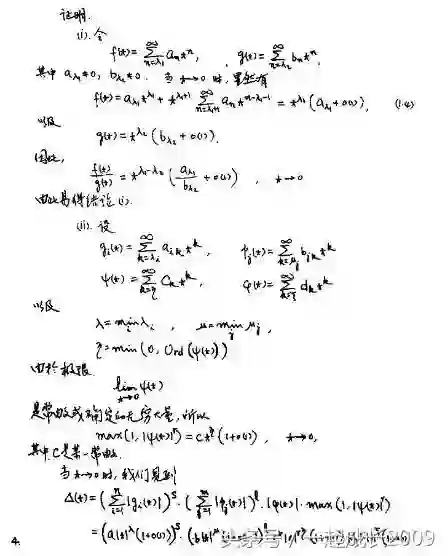 证明.
(i). 令
f(x)=∑_{n=λ₁}^{∞} aₙxⁿ, g(x)=∑_{n=λ₂}^{∞} bₙxⁿ,
其中 a_{λ₁}≠0, b_{λ₂}≠0. 当 x→0 时, 显然有
f(x)=a_{λ₁}x^{λ₁}+x^{λ₁+1}∑_{n=λ₁+1}^{∞} aₙx^{n-λ₁-1}=x^{λ₁}(a_{λ₁}+o(1)), (1.4)
以及
g(x)=x^{λ₂}(b_{λ₂}+o(1)).
因此,
f(x)/g(x)=x^{λ₁-λ₂}(a_{λ₁}/b_{λ₂}+o(1)), x→0
由此易得结论(i).
(ii). 设
g_i(x)=∑_{k=λ_i}^{∞} a_{ik}x^k, p_j(x)=∑_{k=μ_j}^{∞} b_{jk}x^k
ψ(x)=∑_{k=η}^{∞} c_k x^k, φ(x)=∑_{k=ξ}^{∞} d_k x^k
以及
λ=min_i λ_i, μ=min_j μ_j,
=min(0, Ord(ψ(x)))
由于极限
lim_{x→0} ψ(x)
是常数或确定的无穷大量, 所以
max(1, |ψ(x)|
=c (1+o(1)), x→0,
其中 c 是某一常数.
当 x→0 时, 我们见到
Δ(x)=(∑_{i=1}^{n}|g_i(x)|)^s·(∑_{j=1}^{m}|p_j(x)|)^l·|φ(x)|·max(1, |ψ(x)|
=(a|x|^λ(1+o(1)))^s·(b|x|^μ
4.
头条号
2009